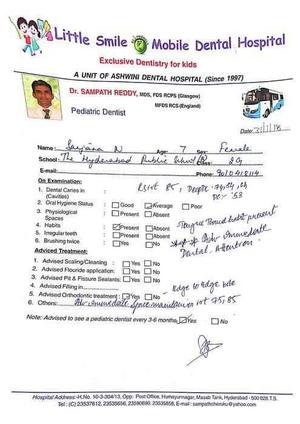 Little Smile Mobile Dental Hospital
Exclusive Dentistry for kids
A UNIT OF ASHWINI DENTAL HOSPITAL (Since 1997)
Dr. SAMPATH REDDY, MDS, FDS RCPS (Glasgow)
MFDS RCS-(England)
Pediatric Dentist
Date:
Name: Sanjana N Age: 7 Sex: Female
School: The Hyderabad Public School Class: 2G
E-mail: Phone: 9010418114
On Examination:
1. Dental Caries in (Cavities)
2. Oral Hygiene Status : Good Average Poor
3. Physiological Spaces : Present Absent
4. Habits : Present Absent
5. Irregular teeth : Present Absent
6. Brushing twice : Yes No
Tongue Thrust habit present
Adv Immediate
Dental Attention
Advised Treatment:
1. Advised Scaling/Cleaning : Yes No
2. Advised Flouride application: Yes No
3. Advised Pit & Fissure Sealants: Yes No
4. Advised Filling in
5. Advised Orthodontic treatment : Yes No
Edge to Edge bite
6. Others: Adv Immediate Space maintainer irt 75, 85
Note: Advised to see a pediatric dentist every 3-6 months Yes No
Hospital Address:-H.No. 10-3-304/13, Opp: Post Office, Humayunnagar, Masab Tank, Hyderabad - 500 028 T.S.
Tel : (C) 23537612, 23535656, 23590690, 23535856, E-mail : sampathcheruku@yahoo.com